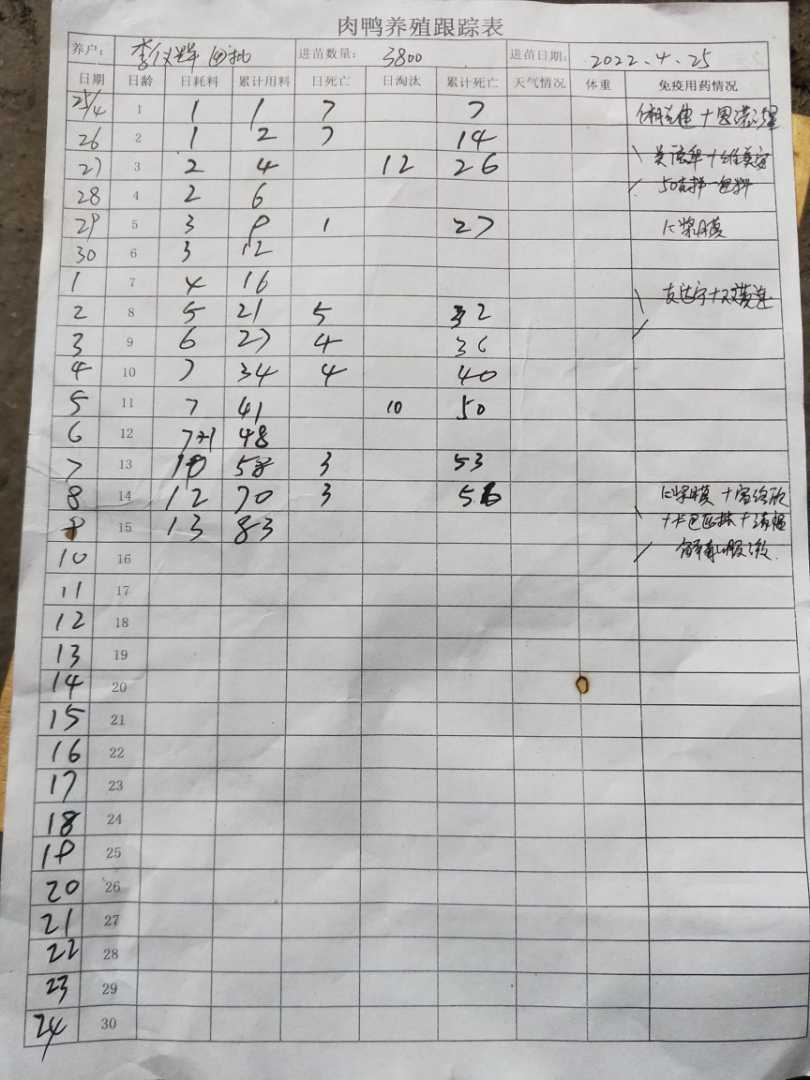 肉鸭养殖跟踪表
养户： 李 四批 进苗数量： 3800 进苗日期： 2022.4.25
日期 日龄 日耗料 累计用料 日死亡 日淘汰 累计死亡 天气情况 体重 免疫用药情况
25/4 1 1 1 7 7
26 2 1 2 7 14
27 3 2 4 12 26
28 4 2 6
29 5 3 9 1 27
30 6 3 12
1 7 4 16
2 8 5 21 5 32
3 9 6 27 4 36
4 10 7 34 4 40
5 11 7 41 10 50
6 12 7+1 48
7 13 10 58 3 53
8 14 12 70 3 56
9 15 13 83
10 16
11 17
12 18
13 19
14 20
15 21
16 22
17 23
18 24
19 25
20 26
21 27
22 28
23 29
24 30